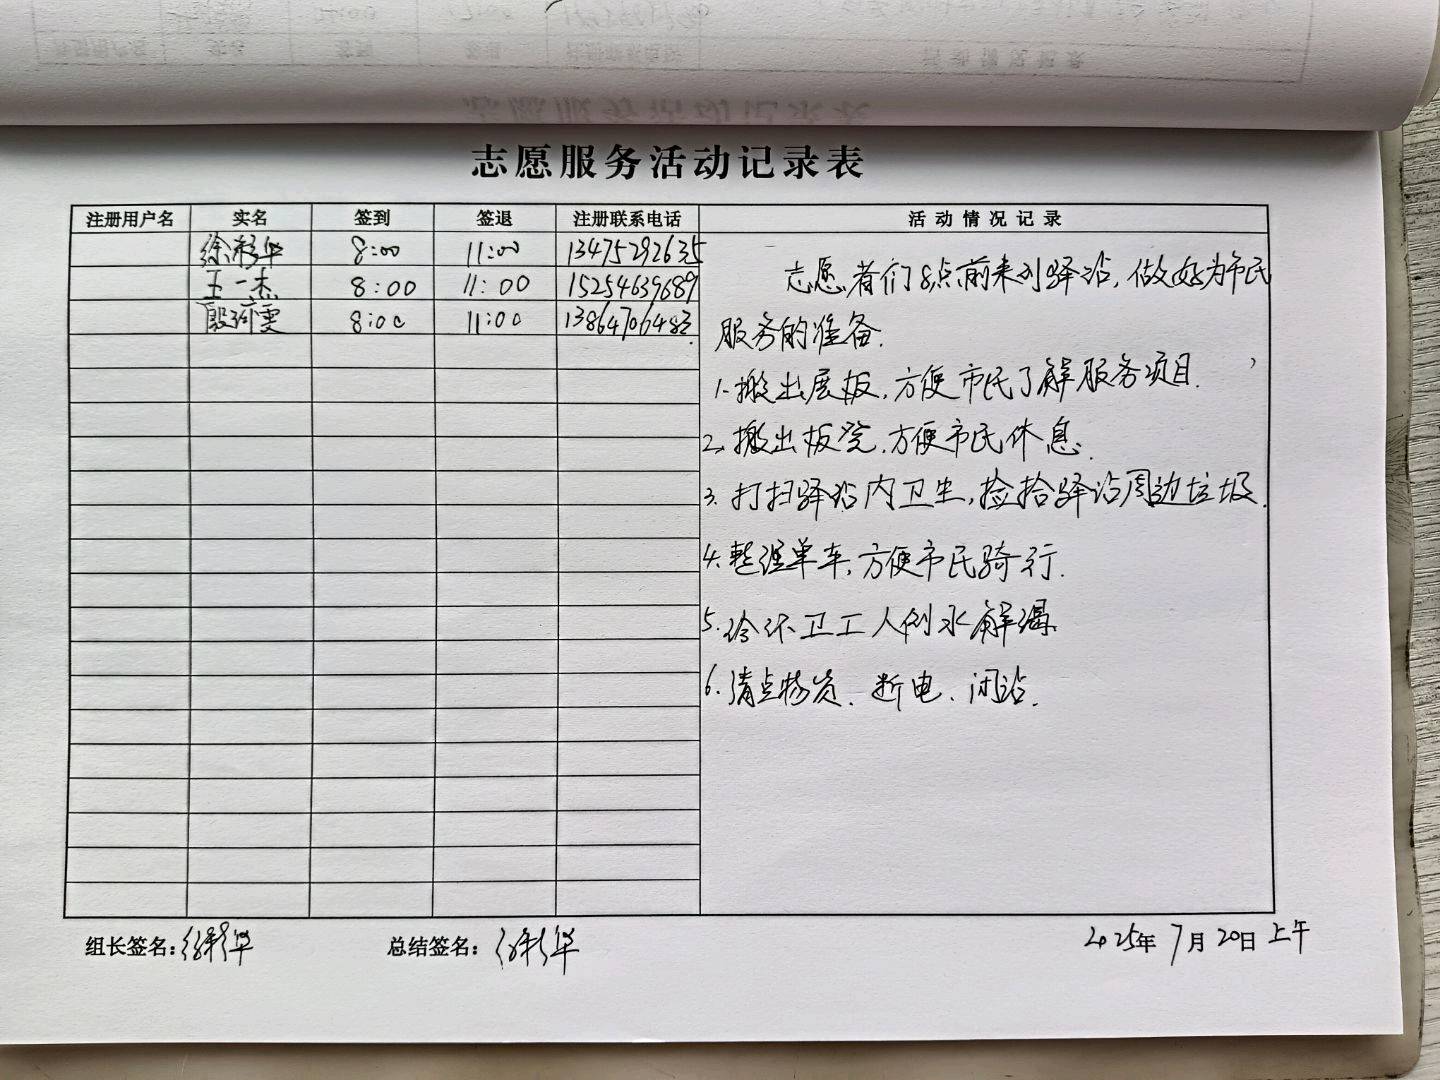 志愿服务活动记录表
注册用户名 实名 签到 签退 注册联系电话 活动情况记录
徐彩华 8:00 11:00 13475292635
王一杰 8:00 11:00 15254639689
殷河雯 8:00 11:00 13864706483
志愿者们8点前来到驿站,做好为市民
服务的准备.
1.搬出展板,方便市民了解服务项目.
2.搬出板凳,方便市民休息.
3.打扫驿站内卫生,捡拾驿站周边垃圾.
4.整理单车,方便市民骑行.
5.给环卫工人倒水解渴
6.清点物资、断电、闭站.
组长签名:徐彩华 总结签名:徐彩华 2025年7月20日上午